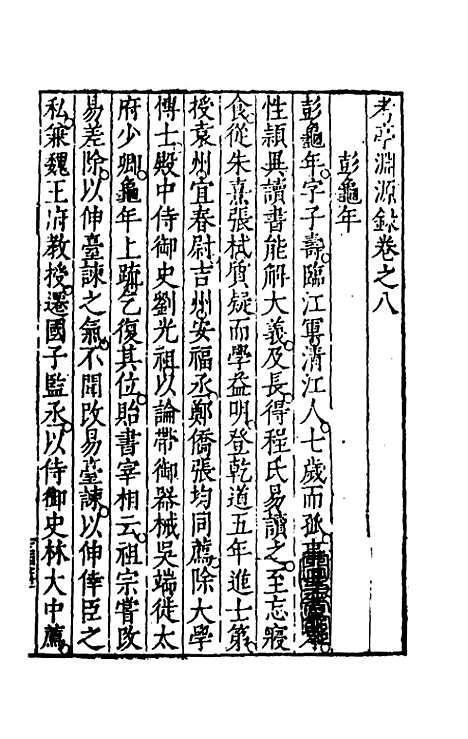 考亭淵源錄卷之八
彭龜年
彭龜年字子壽臨江軍清江人七歲而孤事
性頴異讀書能解大義及長得程氏易讀之至忘寢
食從朱熹張栻質疑而學益明登乾道五年進士第
授袁州宜春尉吉州安福丞鄭僑張均同薦除大學
博士殿中侍御史劉光祖以論帶御器械吳端徒太
府少卿龜年上疏乞復其位貽書宰相云祖宗嘗改
易差除以伸臺諫之氣不聞改易臺諫以伸倖臣之
私兼魏王府教授遷國子監丞以侍御史林大中薦